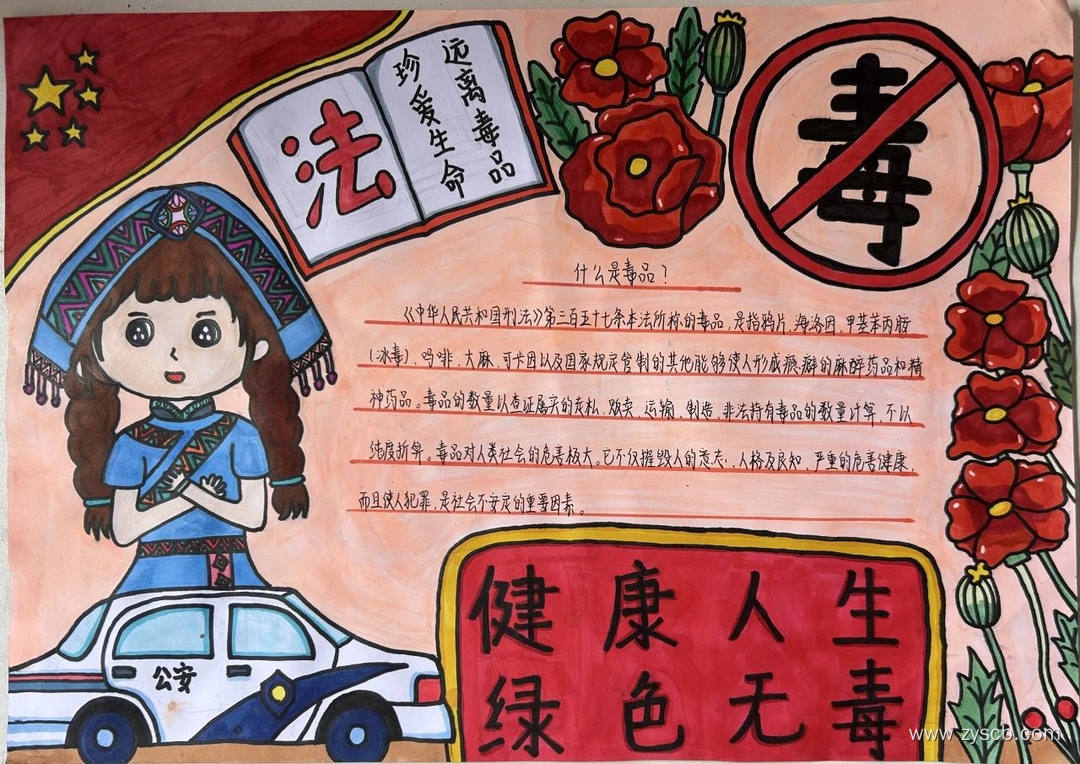 法
远离毒品
珍爱生命
毒
什么是毒品？
《中华人民共和国刑法》第三百五十七条本法所称的毒品，是指鸦片，海洛因，甲基苯丙胺
（冰毒）、吗啡、大麻、可卡因以及国家规定管制的其他能够使人形成瘾癖的麻醉药品和精
神药品。毒品的数量以查证属实的走私、贩卖、运输、制造、非法持有毒品的数量计算，不以
纯度折算。毒品对人类社会的危害极大。它不仅摧毁人的意志，人格及良知，严重的危害健康，
而且使人犯罪，是社会不安定的重要因素。
公安
健康人生
绿色无毒
www.zyscb.com